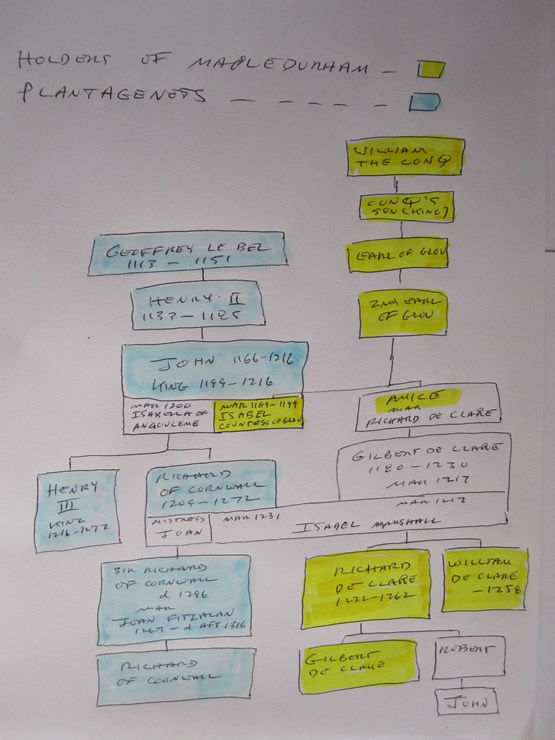 HOLDERS OF MAPLEDURHAM -
PLANTAGENETS - - - - -
WILLIAM
THE CONQ
CONQ'S
SON (KING)
EARL OF GLOU
2ND EARL
OF GLOU
GEOFFREY LE BEL
1113 - 1151
HENRY II
1133 - 1185
JOHN 1166-1216
KING 1199-1216
MAR 1200
ISABELLA OF
ANGOULEME
MAR 1189-1199
ISABEL
COUNTESS OF GLOU
AMICE
MAR
RICHARD DE CLARE
GILBERT DE CLARE
1180 - 1230
MAR 1217
HENRY
III
KING
1216-1272
RICHARD
OF CORNWALL
1209-1272
MISTRESS
JOAN
MAR 1231
MAR 1217
ISABEL MARSHALL
SIR RICHARD
OF CORNWALL
d 1296
MAR
JOAN FITZALAN
1267-d AFT 1316
RICHARD
OF CORNWALL
RICHARD
DE CLARE
1222-1262
WILLIAM
DE CLARE
-1258
GILBERT
DE CLARE
ROBERT
JOHN